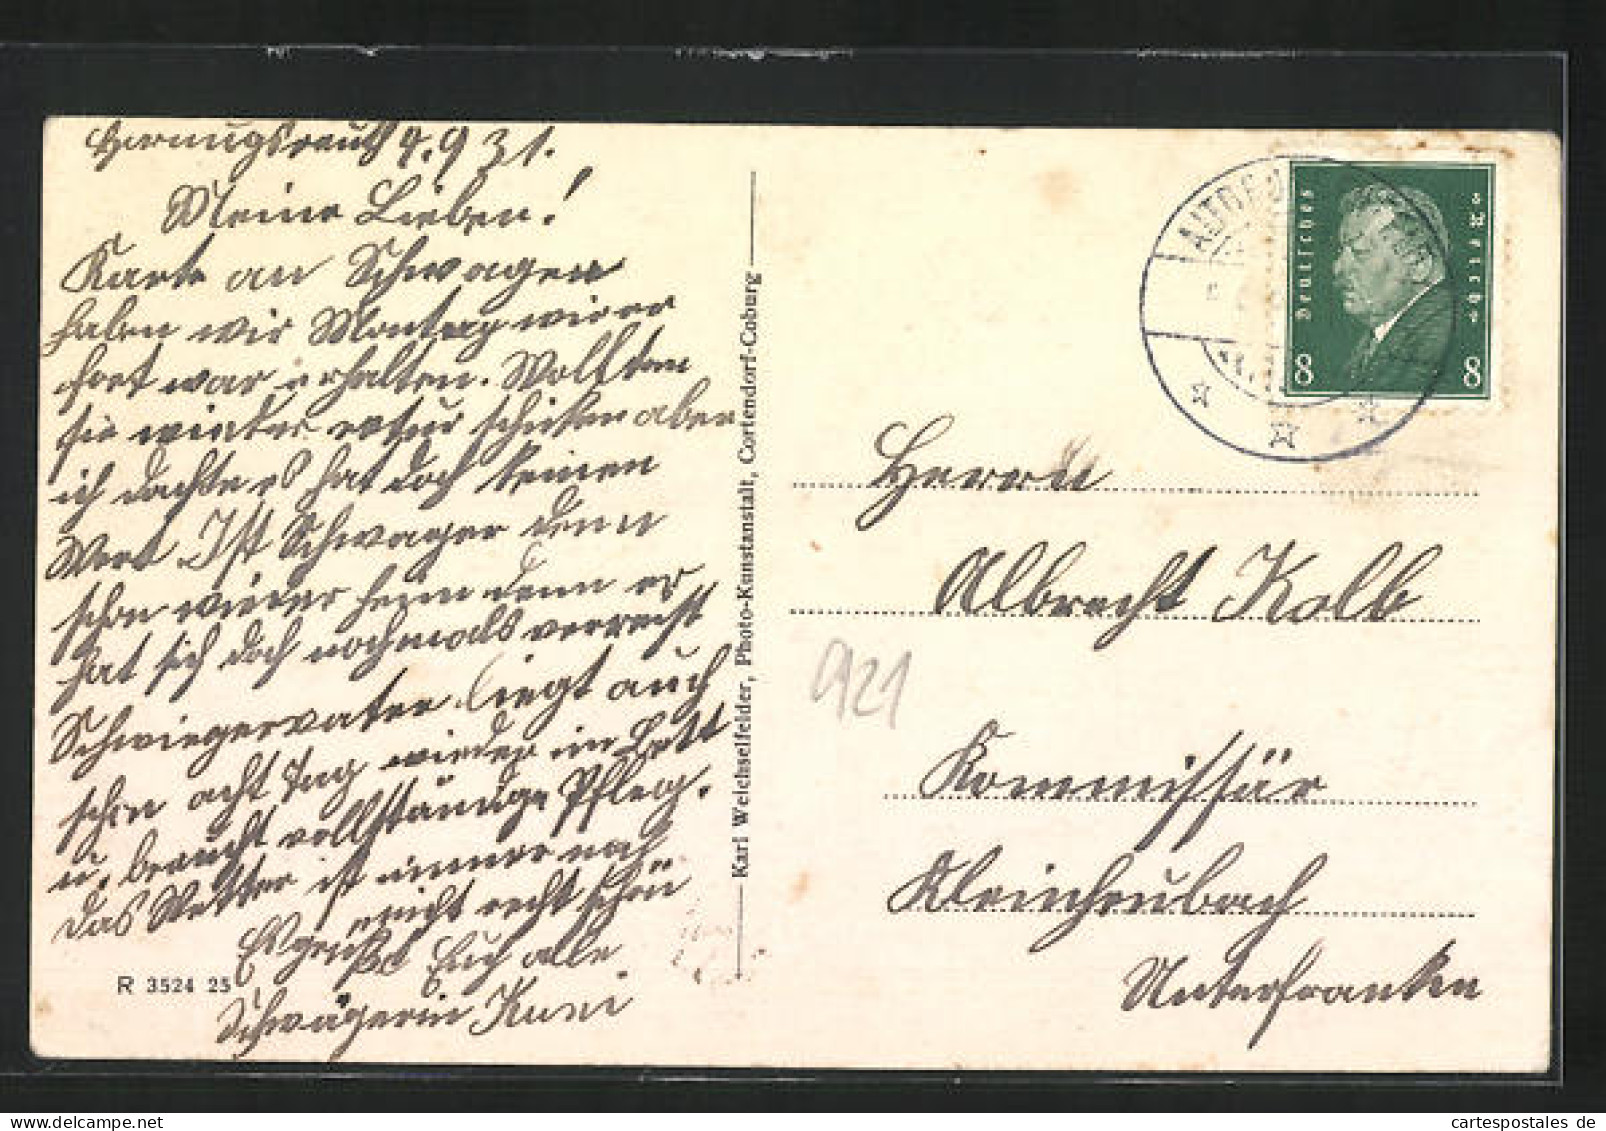 4.9.31.
Meine Lieben!
Karte an Schwagern
haben wir Montag wieder
fort war erhalten. Wollten
sie wieder retur schicken aber
ich dachte es hat doch keinen
Wert. Ist Schwager denn
schon wieder heim denn er
hat sich doch nochmals verreist
Schwiegervater liegt auch
schon acht Tag wieder im Bett
u. braucht vollständige Pfleg.
das Wetter ist immer noch
nicht recht schön
Es grüßt Euch alle
Schwägerin Kuni
R 3524 25
Karl Weichselfelder, Photo-Kunstanstalt, Cortendorf-Coburg
Deutsches Reich
8 8
Herrn
Albrecht Kolb
921
Kommissär
Kleinheubach
Unterfranken
cartespostales de